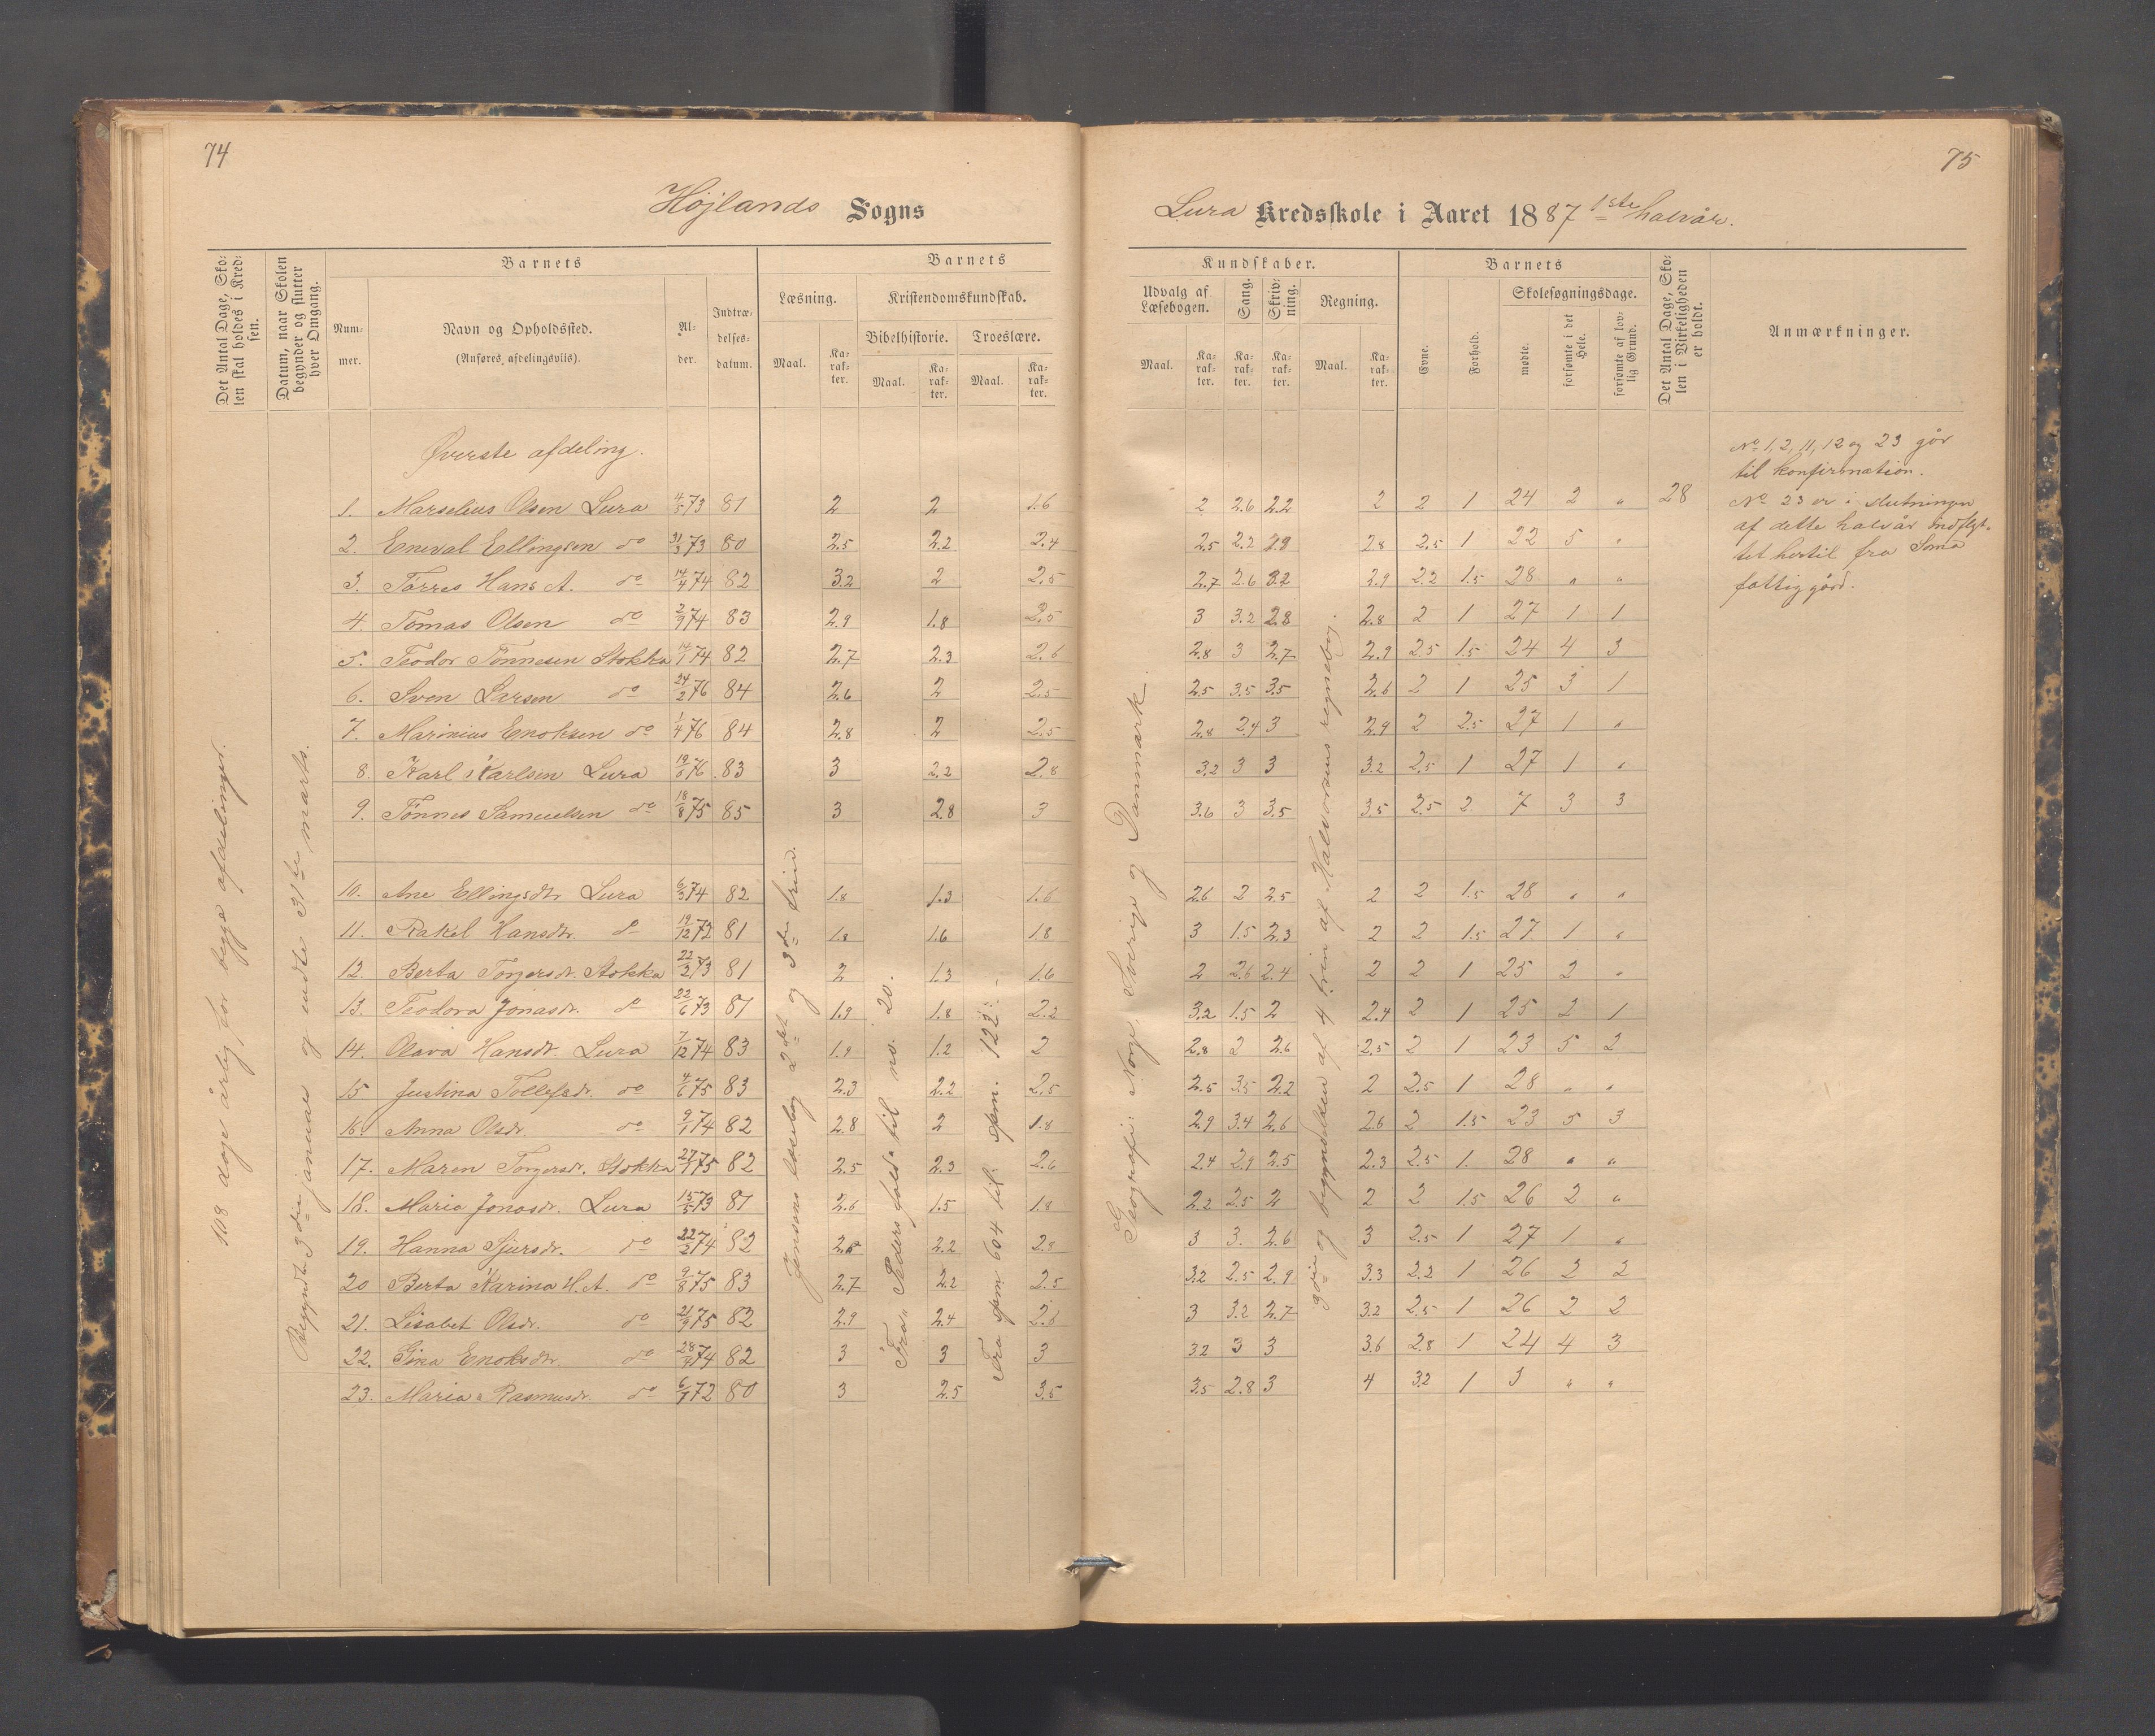 74
Højlands Sogns
Det Antal Dage, Sko-
len skal holdes i Kred-
sen.
Datum, naar Skolen
begynder og slutter
hver Omgang.
Barnets
Num-
mer.
Navn og Opholdssted.
(Anføres afdelingsviis).
Al-
der.
Indtræ-
delses-
datum.
Barnets
Læsning.
Maal.
Ka-
rak-
ter.
Kristendomskundskab.
Bibelhistorie.
Maal.
Ka-
rak-
ter.
Troeslære.
Maal.
Ka-
rak-
ter.
108 dage årlig for begge afdelinger.
Begyndte 3die januar og endte 31te marts.
Jensens læsebog 2det og 3die trin.
Fra "Peders fald" til no. 20.
Fra spm 604 til spm. 122.
Øverste afdeling.
1. Marselius Olsen Lura 4/5 73 81 2 2 1.6
2. Eneval Ellingsen do 31/3 73 80 2.5 2.2 2.4
3. Tørres Hans A. do 14/4 74 82 3.2 2 2.5
4. Tomas Olsen do 2/9 74 83 2.9 1.8 2.5
5. Teodor Tønnesen Stokka 14/1 74 82 2.7 2.3 2.6
6. Sven Larsen do 24/2 76 84 2.6 2 2.5
7. Marinius Enoksen do 1/4 76 84 2.8 2 2.5
8. Karl Karlsen Lura 19/6 76 83 3 2.2 2.8
9. Tønnes Samuelsen do 18/8 75 85 3 2.8 3
10. Ane Ellingsdtr Lura 6/3 74 82 1.8 1.3 1.6
11. Rakel Hansdtr. do 19/12 72 81 1.8 1.6 1.8
12. Berta Torgersdr. Stokka 22/2 73 81 2 1.3 1.6
13. Teodora Jonasdr. do 22/6 73 81 1.9 1.8 2.2
14. Olava Hansdr. Lura 7/12 74 83 1.9 1.2 2
15 Justina Tollefsdr. do 4/6 75 83 2.3 2.2 2.5
16. Anna Olsdr. do 9/1 74 82 2.8 2 1.8
17. Maren Torgersdr. Stokka 27/1 75 82 2.5 2.3 2.6
18. Maria Jonasdr. Lura 15/5 73 81 2.6 1.5 1.8
19. Hanna Sjursdr. do 22/2 74 82 2.5 2.2 2.8
20 Berta Karina H.A. do 9/8 75 83 2.7 2.2 2.5
21. Lisabet Olsdr. do 21/9 75 82 2.9 2.4 2.6
22. Gina Enoksdtr do 28/9 74 82 3 3 3
23. Maria Rasmusdr. do 6/1 72 80 3 2.5 3.5
75
Lura Kredsskole i Aaret 1887 1ste halvår.
Kundskaber.
Udvalg af
Læsebogen.
Maal.
Ka-
rak-
ter.
Sang.
Ka-
rak-
ter.
Skriv-
ning.
Ka-
rak-
ter.
Regning.
Maal.
Ka-
rak-
ter.
Barnets
Evne.
Forhold.
Skolesøgningsdage.
mødte.
forsømte i det
Hele.
forsømte af lov-
lig Grund.
Det Antal Dage, Sko-
len i Virkeligheden
er holdt.
Anmærkninger.
Geografi: Norge, Sverige og Danmark.
3die og begyndelsen af 4 trin af Halvorsens regnebog.
2 2.6 2.2 2 2 1 24 2 " 28
2.5 2.2 2.8 2.8 2.5 1 22 5 "
2.7 2.6 3.2 2.9 2.2 1.5 28 " "
3 3.2 2.8 2.8 2 1 27 1 1
2.8 3 2.7 2.9 2.5 1.5 24 4 3
2.5 3.5 3.5 2.6 2 1 25 3 1
2.8 2.4 3 2.9 2 2.5 27 1 "
3.2 3 3 3.2 2.5 1 27 1 "
3.6 3 3.5 3.5 2.5 2 7 3 3
2.6 2 2.5 2 2 1.5 28 " "
3 1.5 2.3 2 2 1.5 27 1 "
2 2.6 2.4 2 2 1 25 2 "
3.2 1.5 2 2.4 2 1 25 2 1
2.8 2 2.6 2.5 2 1 23 5 2
2.5 3.5 2.2 2 2.5 1 28 " "
2.9 3.4 2.6 2.6 2 1.5 23 5 3
2.4 2.9 2.5 2.3 2.5 1. 28 " "
2.2 2.5 2 2 2 1.5 26 2 "
3 3. 2.6 3 2.5 1 27 1 "
3.2 2.5 2.9 3.3 2.2 1 26 2 2
3 3.2 2.7 3.2 2.5 1 26 2 2
3.2 3 3 3.6 2.8 1 24 4 3
3.5 2.8 3 4 3.2 1 3 " "
No 1, 2, 11, 12 og 23 går
til konfirmation.
No 23 er i slutningen
af dette halvår indflyt-
tet hertil fra Soma
fattiggård.